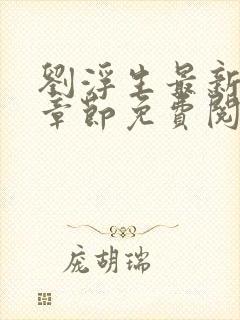 劉浮生最新
章節免費閱
庞胡瑞